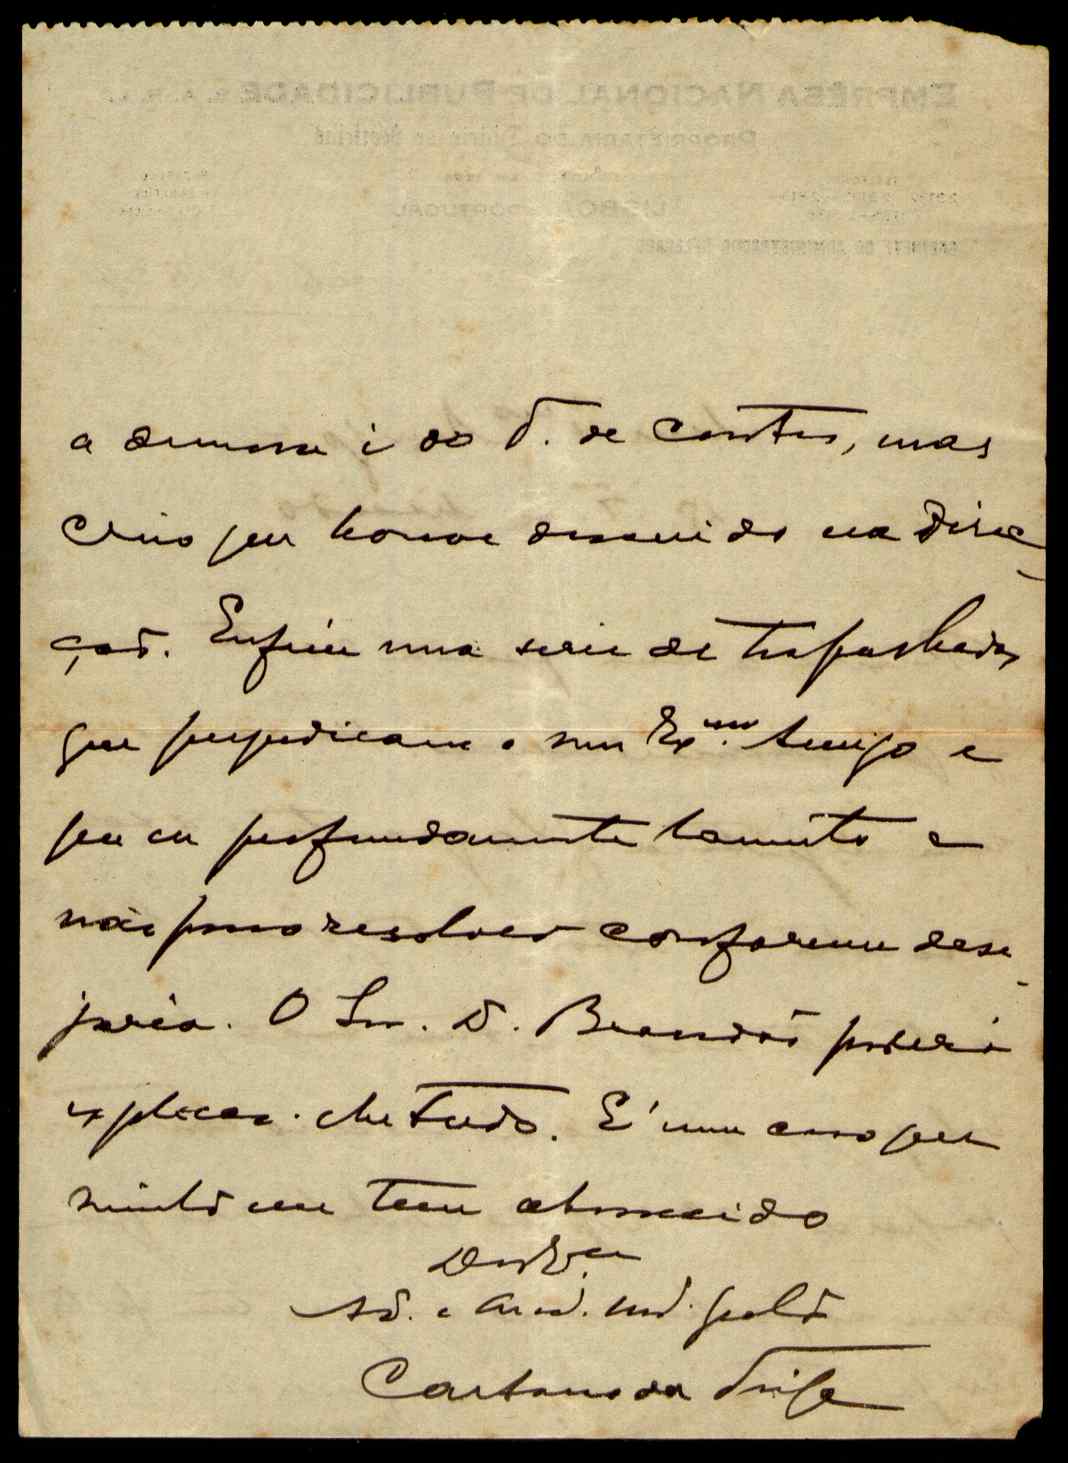 EMPRÊSA NACIONAL DE PUBLICIDADE
PROPRIETÁRIA DO Diário de Notícias
LISBOA PORTUGAL
a demora é do T. de Contas, mas
creio que houve descuido na direc-
ção. Enfim uma serie de trapalhadas
que prejudicam o seu Exmo. Amigo e
que eu profundamente lamento e
não posso resolver conforme dese-
jaria. O Snr. D. Brandão poderá
explicar-lhe tudo. É um caso que
muito me tem aborrecido
De V. Exa
Caetano da